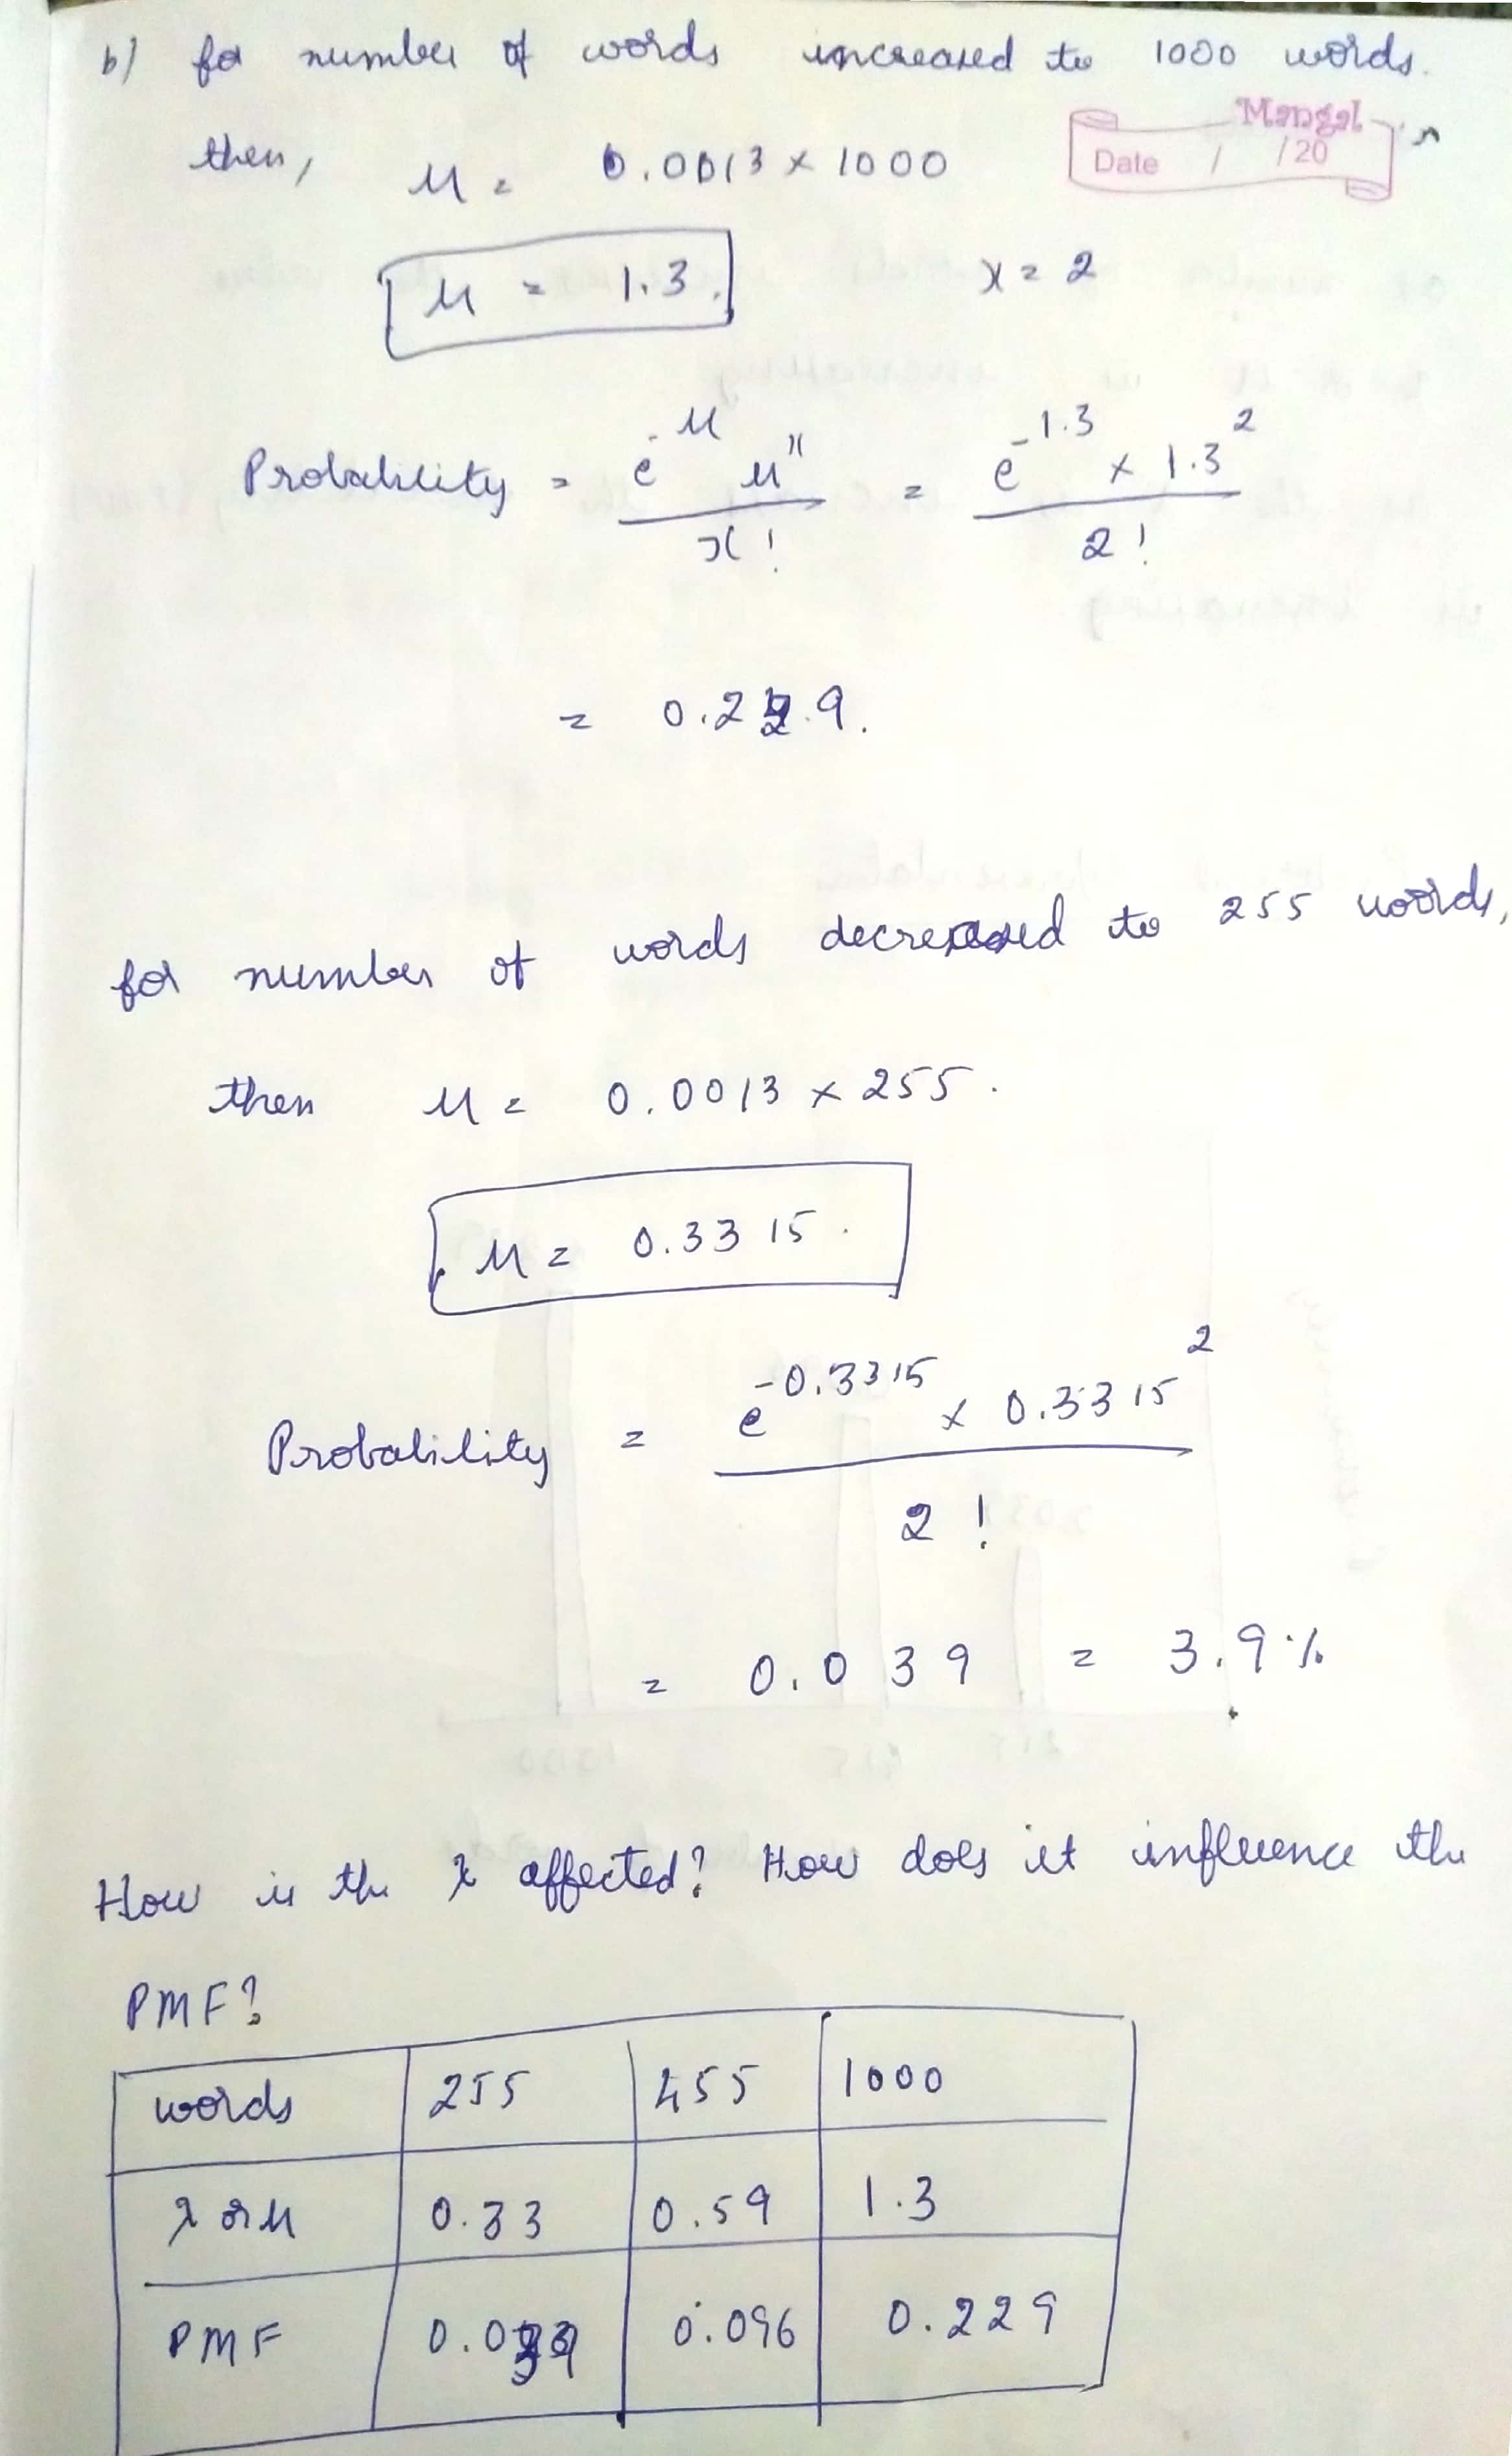 b) for number of words increased to 1000 words.
Mangal
Date / /20
then, μ = 0.0013 × 1000
μ = 1.3. x = 2
Probability = e^-μ μ^x / x! = e^-1.3 × 1.3^2 / 2!
= 0.229.
for number of words decreased to 255 words,
then μ = 0.0013 × 255.
μ = 0.3315.
Probability = e^-0.3315 × 0.3315^2 / 2!
= 0.039 = 3.9%
How is the λ affected? How does it influence the
PMF?
words 255 455 1000
λ or μ 0.33 0.59 1.3
PMF 0.039 0.096 0.229